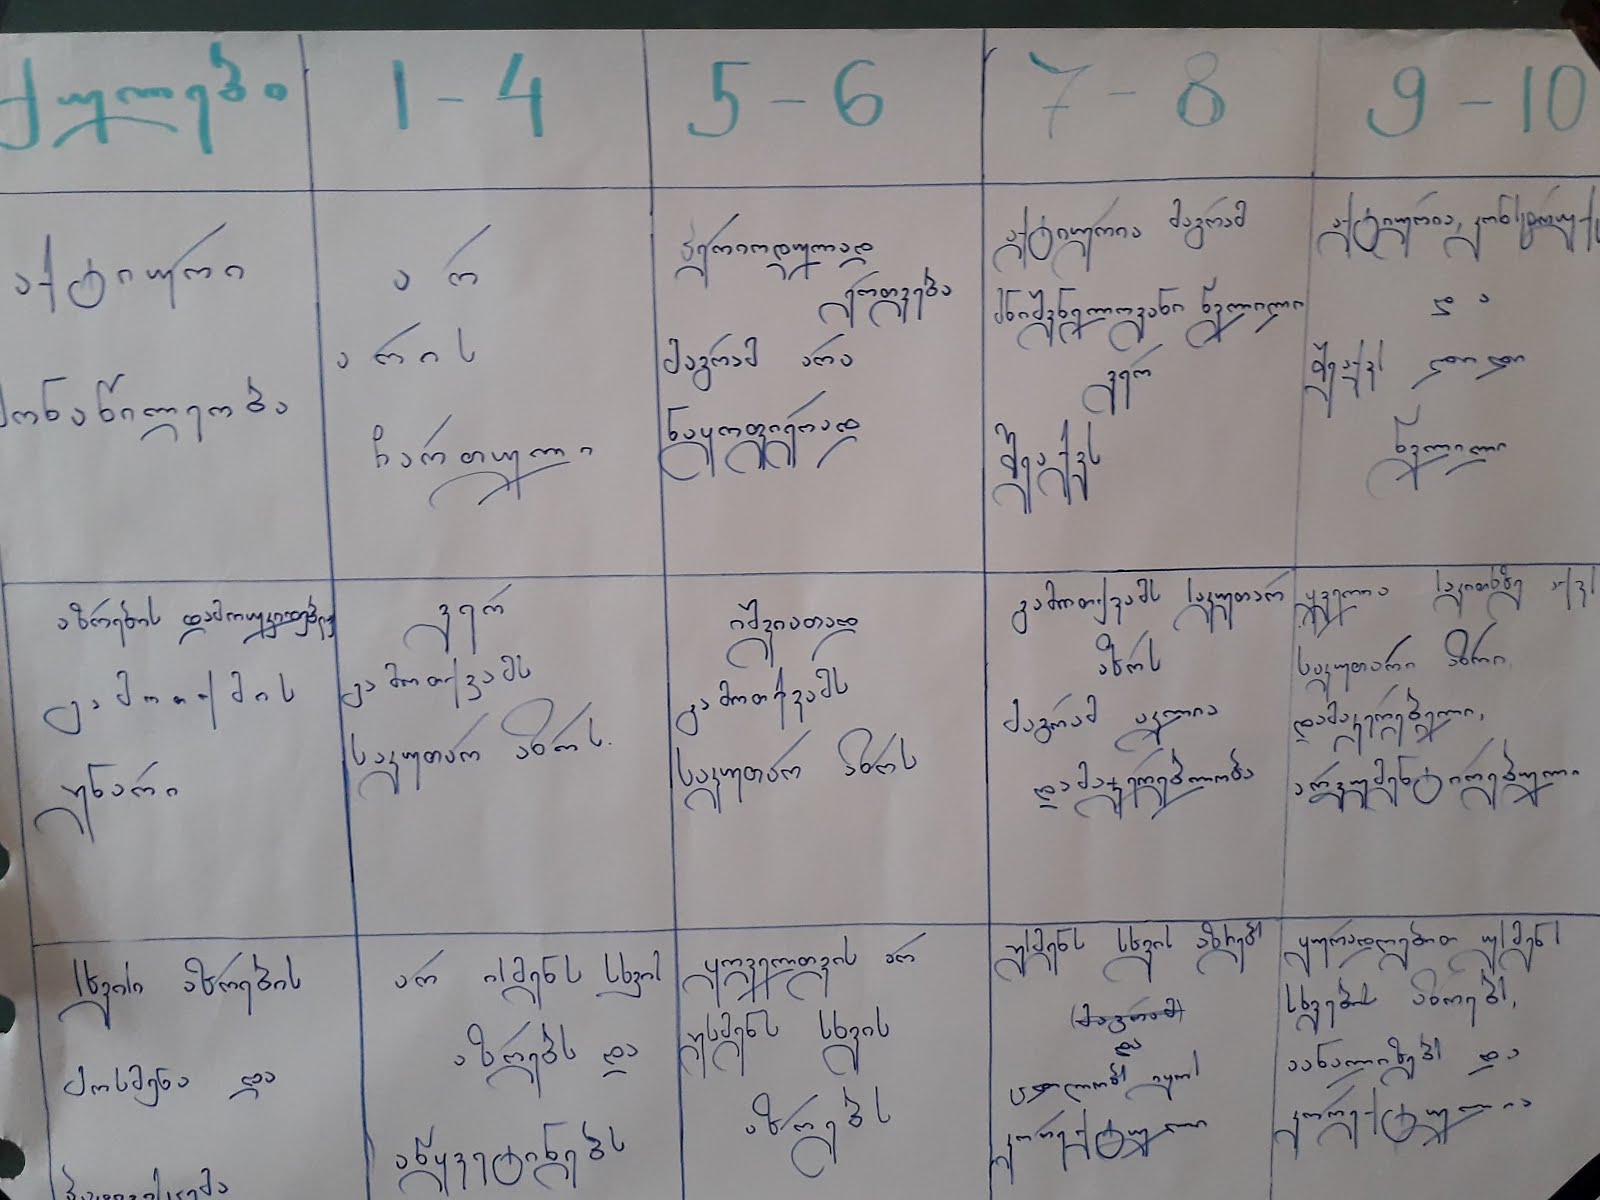 ქულები 1 - 4 5 - 6 7 - 8 9 - 10
აქტიური
მონაწილეობა
არ
არის
ჩართული
პერიოდულად
ერთვება
მაგრამ არა
ნაყოფიერად
აქტიურია მაგრამ
მნიშვნელოვანი წვლილი
ვერ
შეაქვს
აქტიურია,
და
შეაქვს დიდი
წვლილი
აზრების დამოუკიდებლად
გამოთქმის
უნარი
ვერ
გამოთქვამს
საკუთარ აზრს.
იშვიათად
გამოთქვამს
საკუთარ აზრს
გამოთქვამს საკუთარ
აზრს
მაგრამ აკლია
დამაჯერებლობა
ყველა საკითხზე აქვს
საკუთარი აზრი,
დამაჯერებელი,
არგუმენტირებული
სხვისი აზრების
მოსმენა და
არ ისმენს სხვის
აზრებს და
აწყვეტინებს
ყოველთვის არ
უსმენს სხვის
აზრებს
უსმენს სხვის აზრებს
(მაგრამ)
და
ცდილობს იყოს
კორექტული
ყურადღებით უსმენს
სხვების აზრებს,
აანალიზებს და
კორექტულია